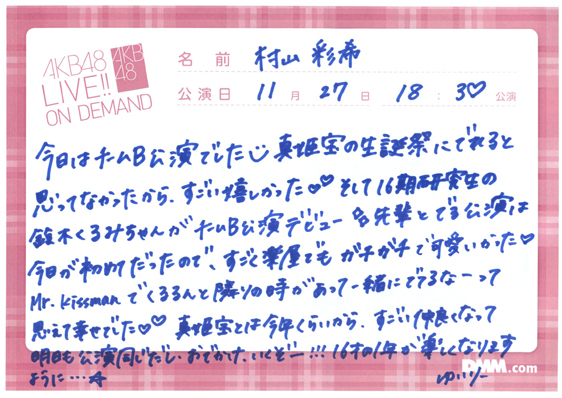 AKB48
LIVE!!
ON DEMAND
AKB
48
名前 村山 彩希
公演日 11月27日 18:30♡公演
今日はチームB公演でした 真姫宝の生誕祭にでれると
思ってなかったから、すごい嬉しかった♡♡ そして16期研究生の
鈴木くるみちゃんがチームB公演デビュー&先輩とでる公演は
今日が初めてだったので、すごく楽屋でもガチガチで可愛いかった♡
Mr.Kissmanでくるるんと隣りの時があって一緒にでてるなーって
思えて幸せでした♡♡ 真姫宝とは今年くらいから、すごい仲良くなって
明日も公演同じだし、おでかけ、いくぞー!!! 16才の1年が楽しくなります
ように…☆ ゆいりー
DMM.com